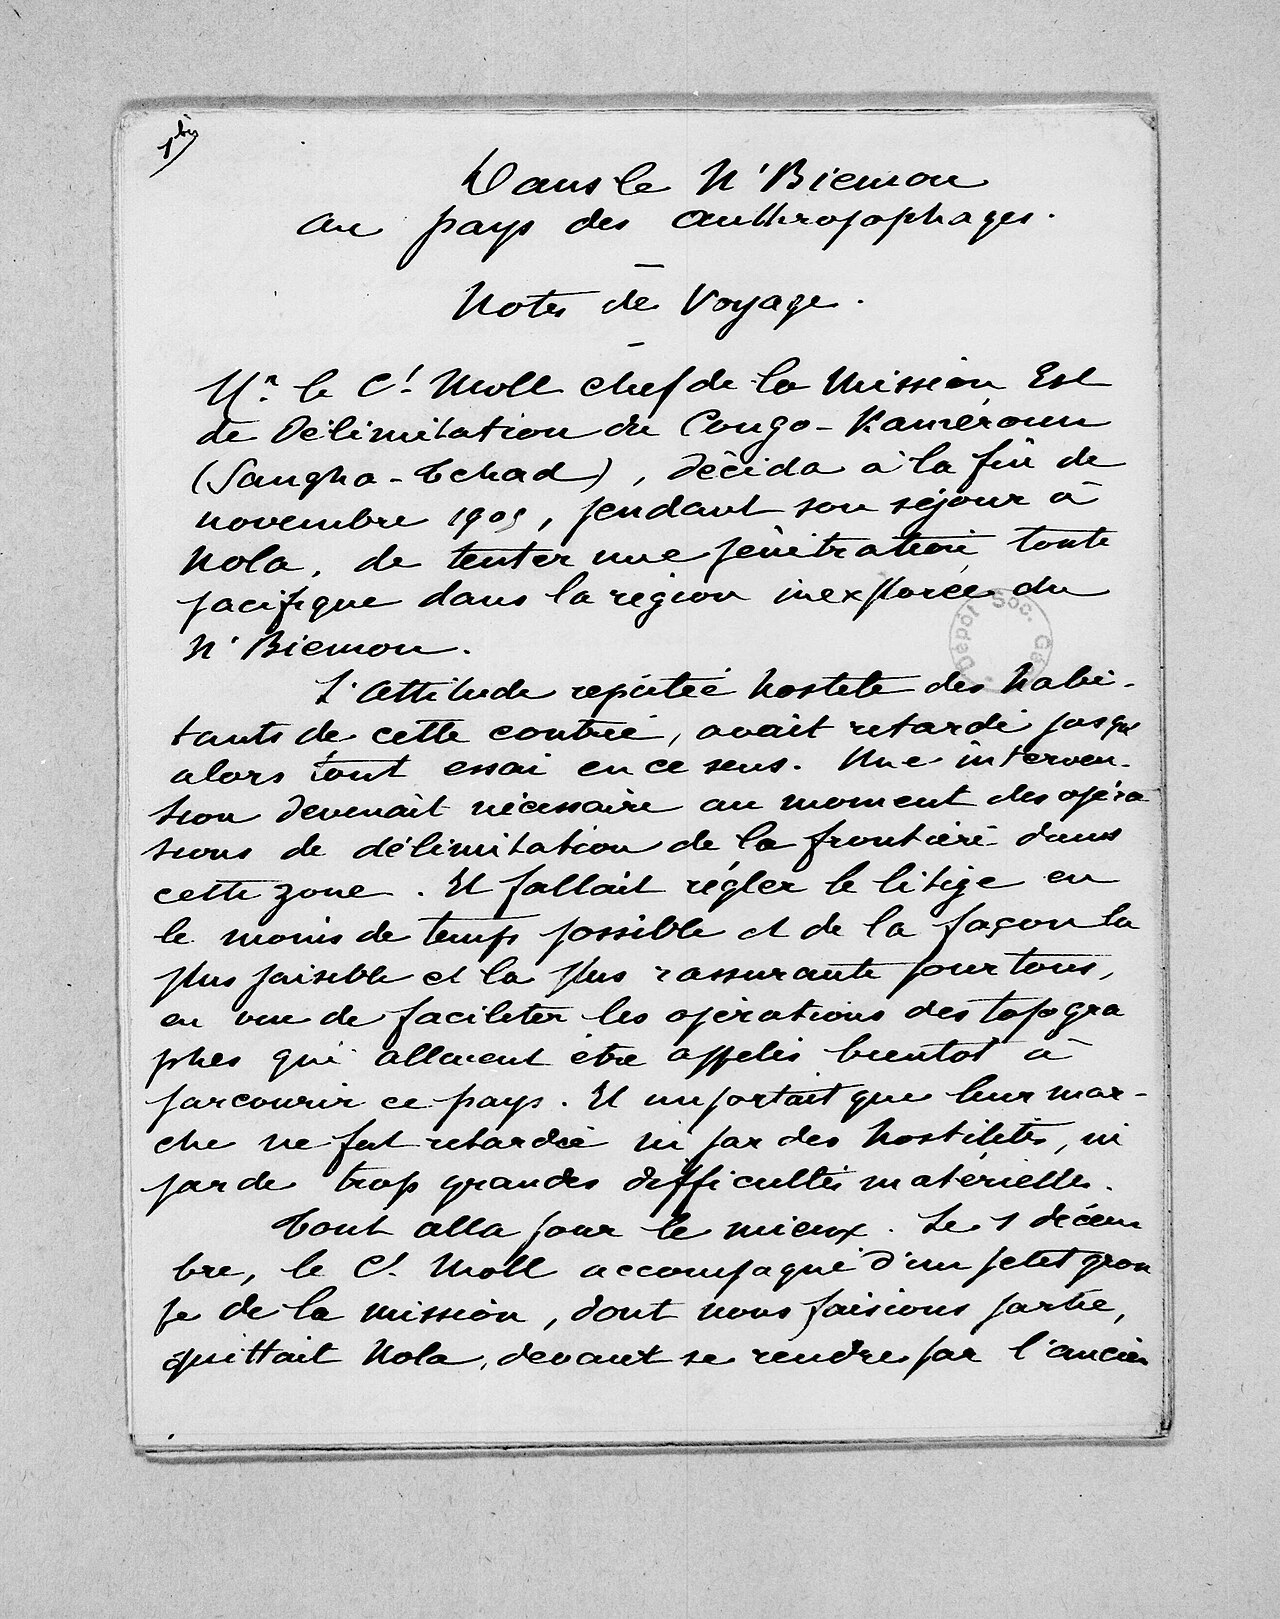 1 bis
Dans le N'Biemou
au pays des anthropophages.
Notes de Voyage.
Mr. le Ct. Moll chef de la Mission Est
de Délimitation du Congo-Kaméroun
(Sangha-Tchad), décida à la fin de
novembre 1905, pendant son séjour à
Nola, de tenter une pénétration toute
pacifique dans la région inexplorée du
N'Biemou.
L'attitude réputée hostile des habi-
tants de cette contrée, avait retardé jusqu'
alors tout essai en ce sens. Une interven-
tion devenait nécessaire au moment des opéra
tions de délimitation de la frontière dans
cette zone. Il fallait régler le litige en
le moins de temps possible et de la façon la
plus paisible et la plus rassurante pour tous,
en vue de faciliter les opérations des topogra
phes qui allaient être appelés bientôt à
parcourir ce pays. Il importait que leur mar-
che ne fut retardée ni par des hostilités, ni
par de trop grandes difficultés matérielles.
Tout alla pour le mieux. Le 1 décem
bre, le Ct. Moll accompagné d'un petit grou
pe de la mission, dont nous faisions partie,
quittait Nola, devant se rendre par l'ancien
Dépôt Soc. Gé